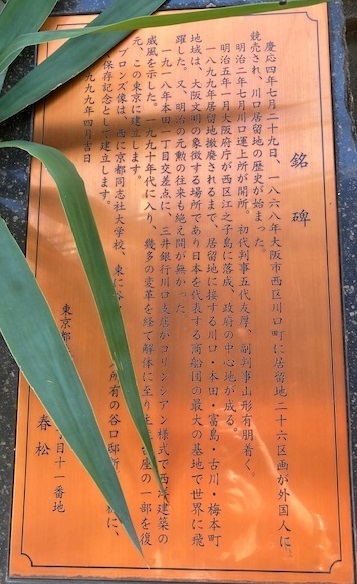 銘碑
慶応四年七月二十九日、一八六八年大阪市西区川口町に居留地二十六区画が外国人に、
競売され、川口居留地の歴史が始まった。
明治二年七月川口運上所が開所。初代判事五代友厚、副判事山形有朋着く。
明治五年一月大阪府庁が西区江之子島に落成、政府の中心地が成る。
一八九九年居留地撤廃されるまで、居留地に接する川口・本田・富島・古川・梅本町
地域は、大阪文明の象徴する場所であり日本を代表する商船国の最大の基地で世界に飛
躍した。又、明治の元勲の往来も絶え間が無かった。
一九一八年本田一丁目交差点に、三井銀行川口支店がコリンシアン様式で西洋建築の
威風を示した。一九九十年代に入り、幾多の変革を経て解体に至り
の一部を復
元、この東京に建立します。
ブロンズ像は、西に京都同志社大学校、東に谷
所有の谷口邸
に、
保存記念として建立します。
九九九年四月吉日
東京都
丁目十一番地
春松